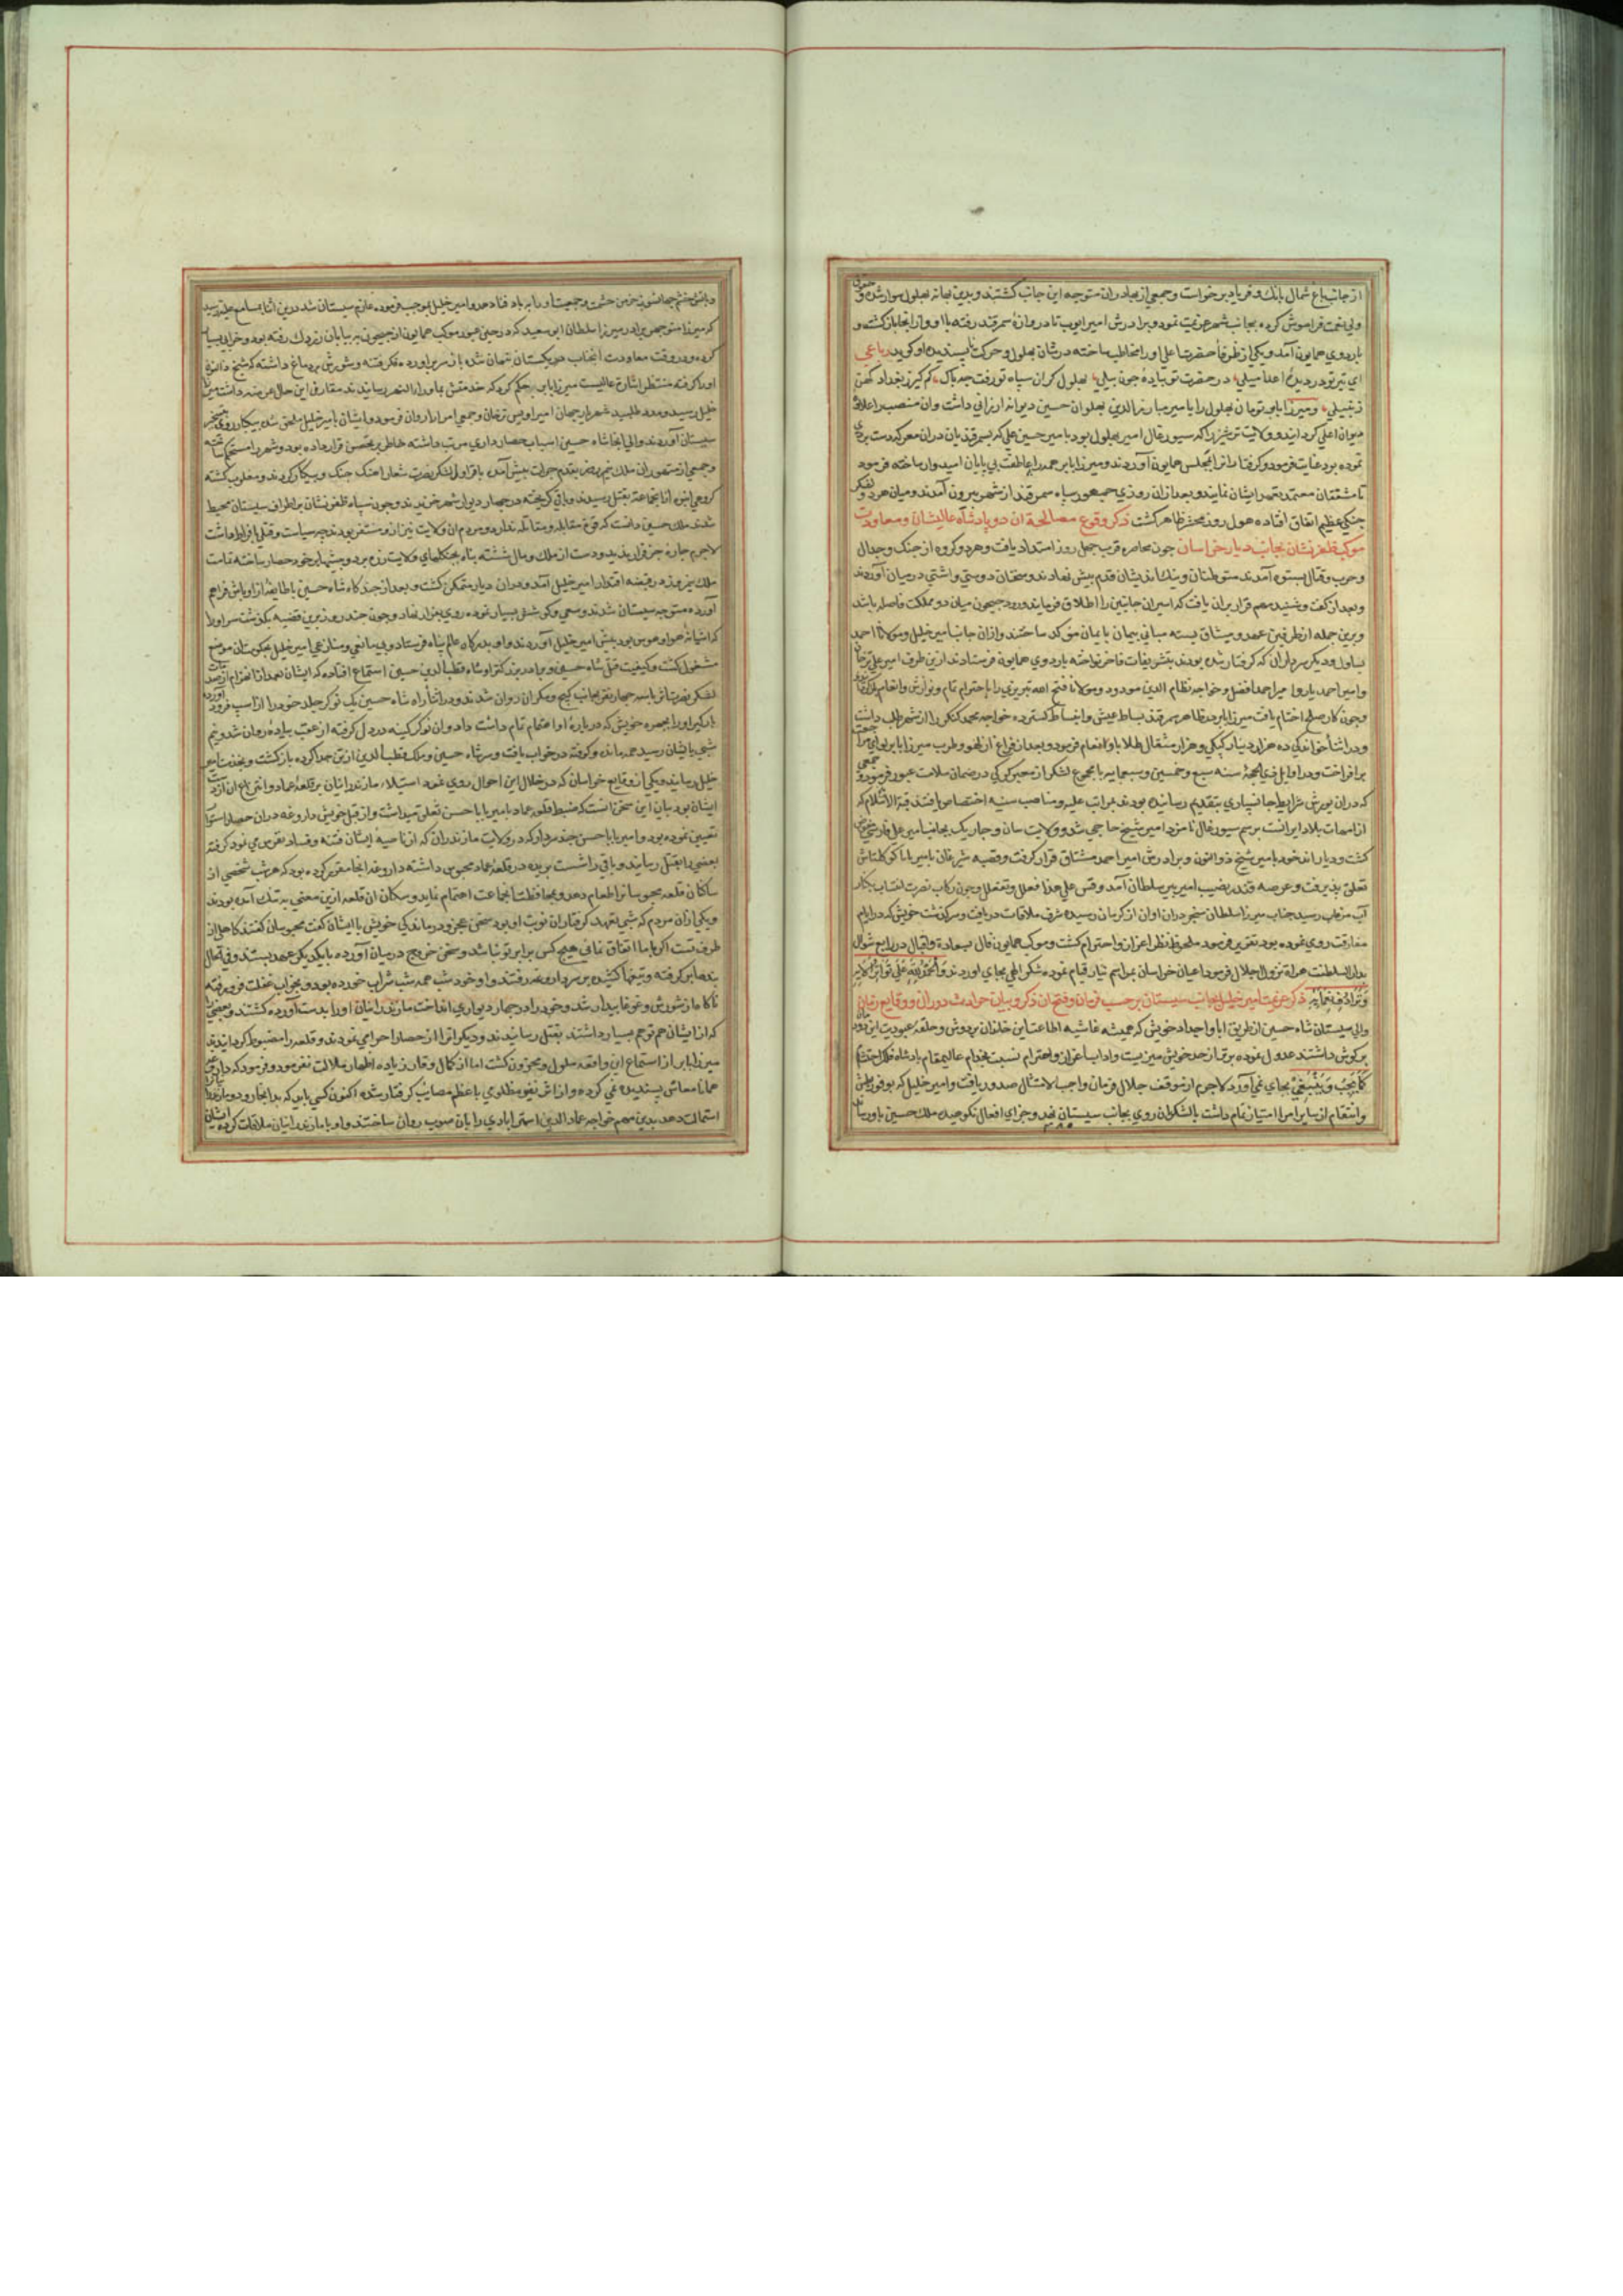 از جانب باغ شمال بانك و فرياد برخواست و جمعی از بهادران متوجه این جانب کشتند و بدین بهانه بهلول سوار شد و حقوق
ولی نعمت فراموش کرده بجانب شهر عزیمت نمود و برادرش امیر ایوب تا دروازه سمرقند رفته با او و از انجا باز کشت و
باردوی همایون آمد و یکی از ظرفا حضرت اعلی را مخاطب ساخته در شان بهلول و حرکت ناپسندیده او کوید رباعی
ای تیر تو در دیده اعدا میلی در حضرت تو پیاده چون پیلی بهلول کران سپاه تو رفت چه باک کم کیر ز بغداد کهن
زنبیلی و میرزا بابر تومان بهلول را بامیر مبارزالدین بهلوان حسین دیوانه ارزانی داشت وان منصب را علاوه
دیوان اعلی کردانید و ولایت ترشیز را که سیورغال امیر بهلول بود بامیر حسین علی که بسمرقندیان دران معرکه دست بردی
نموده بود عنایت فرمود و کرفتارانرا بمجلس همایون آوردند و میرزا بابر همه را بعاطفت بی پایان امیدوار ساخته فرمود
تا مشفقان معتمد بتعهد ایشان نمایند و بعد ازان روزی جمهور سپاه سمرقند از شهر بیرون آمدند و میان هر دو لشکر
جنکی عظیم اتفاق افتاده هول روز محشر ظاهر کشت ذکر وقوع مصالحه ان دو پادشاه عالیشان و معاودت
موکب ظفر نشان بجانب دیار خراسان چون محاصره قرب چهل روز امتداد یافت و هر دو کروه از جنک و جدال
و حرب و قتال بستوه آمدند متوطنان و نیک اندیشان قدم پیش نهادند و سخنان دوستی و اشتی در میان آوردند
و بعد از کفت و شنید مهم قرار بران یافت که اسیران جانبین را اطلاق فرمایند و رود جیحون میان دو مملکت فاصله باشد
و برین جمله از طرفین عهد و میثاق بسته مبانی پیمان بایمان موکد ساختند و ازان جانب امیر خلیل و مولانا احمد
یساول و دیکر سرداران که کرفتار شده بودند بتشریفات فاخر نواخته باردوی همایون فرستادند ازین طرف امیر علی ترخان
و امیر احمد یار و امیر احمد افضل و خواجه نظام الدین مودود و مولانا فتح الله تبریزی را باحترام تمام و نوازش وانعام
و چون کار صلح اختتام یافت میرزا بابر در ظاهر سمرقند بساط عیش و انبساط کسترده خواجه محمد کنکر را از شهر طلب داشت
و در اثناء خوانندکی ده هزار دینار کپکی و هزار مثقال طلا باو انعام فرمود و بعد از فراغ از لهو و طرب میرزا بابر لوای مراجعت
برافراخت و در اوایل ذی الحجه سنه سبع و خمسین و سبعمایه با مجموع لشکر از معبر کرکی در ضمان سلامت عبور فرمود و جمعی
که دران یورش شرایط جانسپاری بتقدیم رسانیده بودند بمراتب علیه و مناصب سنیه اختصاص یافتند قبة الاسلام که
از امهات بلاد ایرانست برسم سیورغال نامزد امیر شیخ حاجی شد و ولایت سان و چاریک بجانب امیر علی فارسی
کشت و دیار اندخود بامیر شیخ ذوالنون و برادرش امیر احمد مشتاق قرار کرفت و قصبه شبرغان بامیر بابا کوکلتاش
تعلق پذیرفت و عرصه قندز نصیب امیر پیر سلطان آمد و قس علی هذا فعلل و تفعلل و چون رکاب نصرت انتساب بکنار
آب مرغاب رسید جناب میرزا سلطان سنجر دران اوان از کرمان رسیده شرف ملاقات دریافت و سرکذشت خویش که در ایام
مفارقت روی نموده بود تقریر فرمود ملحوظ نظر اعزاز و احترام کشت و موکب همایون فال بسعادة و اقبال در رابع شوال
بدار السلطنت هراة نزول اجلال فرمود اعیان خراسان بمراسم نثار قیام نموده شکر الهی بجای آوردند و الحمد لله علی تواتر آلایه
و ترادف نعمایه ذکر عزیمت امیر خلیل بجانب سیستان برحسب فرمان و فتح ان و ذکر و بیان حوادث دوران و وقایع زمان
والی سیستان شاه حسین از طریق ابا و اجداد خویش که همیشه غاشیه اطاعت این خاندان بر دوش و حلقه عبودیت این
بر کوش داشتند عدول نموده برتر از حد خویش میزیست و اداب اعزاز و احترام نسبت بخدام عالیمقام پادشاه فلک احتشام
کما یجب و ینبغی بجای نمی آورد لاجرم از موقف جلال فرمان واجب الامتثال صدور یافت و امیر خلیل که بوفور بطش
و انتقام از سایر امرا امتیاز تمام داشت با لشکر ان روی بجانب سیستان نهد و جزای افعال نکوهیده ملک حسین باو رساند
و باتش خشم جهانسوز خرمن حشمت و جمعیت او را بر باد فنا دهد و امیر خلیل بموجب فرموده عازم سیستان شد درین اثنا بمسامع علیه رسید
که میرزا منوچهر برادر میرزا سلطان ابو سعید کرد در حین عبور موکب همایون از جیحون بر بیابان رفته بود و خرابی بسیار
کرده و در وقت معاودت انجناب در نیکستان پنهان شده باز سر براورده
خلیل رسید و مدد طلبید شهریار جهان امیر اویس ترخان و جمعی امرا را روان فرمود و ایشان بامیر خلیل ملحق شده بیکبار روی
سیستان آوردند و والی انجا شاه حسین اسباب حصارداری مرتب داشته خاطر بر تحصن قرار داده بود و شهر را مستحکم ساخته
و جمعی از متهوران ملک نیمروز بقدم جرات پیش آمده با قراولان لشکر نصرت شعار اهنک جنک و پیکار کردند و مغلوب کشته
کروهی انبوه ازان جماعت بقتل رسیدند و باقی کریخته در حصار دیوار شهر خزیدند و چون سپاه ظفر نشان بر اطراف سیستان محیط
شدند ملک حسین دانست که قوت مقابله و مقاتله ندارد و مردم ان ولایت نیز ازو متنفر بودند چه سیاست و قتل بافراط داشت
لاجرم چاره جز فرار ندید و دست از ملک و مال شسته پناه بجنکلهای ولایت زره برد و بیشها بر خود حصار ساخته
ملک نیمروز در قبضه اقتدار امیر خلیل آمد و دران دیار متمکن کشت و بعد از چند کاه شاه حسین با طایفه از اوباش فراهم
آورده متوجه سیستان شدند و سعی و کوشش بسیار نموده روی بفرار نهاد و چون چند روز برین قضیه بکذشت سر او را
که اشیانه هوا و هوس بود پیش امیر خلیل آوردند و او بدرکاه عالم پناه فرستاد و بی مانعی و منازعی امیر خلیل بحکومت ان موضع
مشغول کشت و کیفیت قتل شاه حسین و برادر بزرکتر او شاه قطب الدین حسین استماع افتاده که ایشان بعد از انهزام
لشکر نصرت اثر با سه چهار نفر بجانب کیج و مکران روان شدند و در اثناء راه شاه حسین یک نوکر جلد خود را از اسپ فرود آورده
بارکیر او را بهمره خویش که درباره او اهتمام تمام داشت داد و ان نوکر کینه در دل کرفته از عقب پیاده روان شد و نیم
شبی بایشان رسید همه مانده و کوفته در خواب یافت و سر شاه حسین و ملک قطب الدین از تن جدا کرده باز کشت و بخدمت امیر
خلیل رسانید و یکی از وقایع خراسان که در خلال این احوال روی نمود استیلاء مازندرانیان بر قلعه عماد و انتزاع ان از دست
ایشان بود بیان این سخن انست که ضبط قلعه عماد بامیر بابا حسن تعلق میداشت و از قبل خویش داروغه دران حصار
تعیین نموده بود و امیر بابا حسن چند سردار که در ولایت مازندران که از ناصیه ایشان فتنه و فساد تفرس می نمود کرفته
بعضی را بقتل رسانید و باقی را در قلعه عماد محبوس داشته داروغه انجا مقرر کرده بود که هر شب شخصی از
ساکنان قلعه محبوسانرا طعام دهد و بمحافظت انجماعت اهتمام نماید و سکان ان قلعه ازین معنی به تنک آمده بودند
و یکی ازان مردم که شبی بتعهد کرفتاران نوبت او بود سخن عجز و درماندکی خویش با ایشان کفت محبوسان کفتند
طرف تست اکر با ما اتفاق نمایی هیچ کس برابر تو نباشد و سخن خروج در میان آورده با یکدیکر عهد بستند و فی الحال
بندها بر کرفته و تیغها کشیده بر سر داروغه رفتند و او خود شب همه شب شراب خورده بود و بخواب غفلت فرو رفته
ناکاه از شورش و غوغا بیدار شد و خود را در چهار دیواری انداخت مازندرانیان او را بدست آورده کشتند و بعضی را
که از ایشان هم توهم بسیار داشتند بقتل رسانیدند و دیکرانرا از حصار اخراج نمودند و قلعه را مضبوط کردانیدند
میرزا بابر از استماع این واقعه ملول و محزون کشت اما از کمال وقار زیاده اظهار ملالت نفرمود و فرمود که داروغه
همانا معاش پسندیده نمی کرده و از اتش نفوس مظلومی باعظم مصایب کرفتار شده اکنون کسی باید که بدانجا رود و
استمالت دهد بدین مهم خواجه عماد الدین استرابادی را بان صوب روان ساختند و او با مازندرانیان ملاقات کرده ایشان